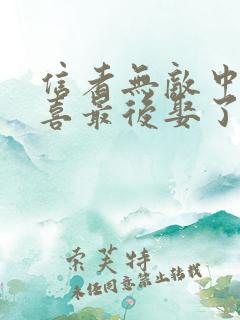 信者無敵中
喜最後娶了
索芙特
未經同意禁止轉載